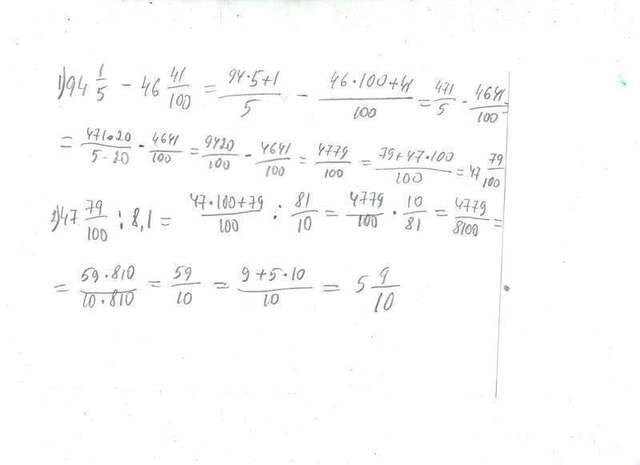 1) 94 1/5 - 46 41/100 = (94·5+1)/5 - (46·100+41)/100 = 471/5 - 4641/100 =
= (471·20)/(5·20) - 4641/100 = 9420/100 - 4641/100 = 4779/100 = (79+47·100)/100 = 47 79/100
2) 47 79/100 : 8,1 = (47·100+79)/100 : 81/10 = 4779/100 · 10/81 = 4779/8100 =
= (59·810)/(10·810) = 59/10 = (9+5·10)/10 = 5 9/10